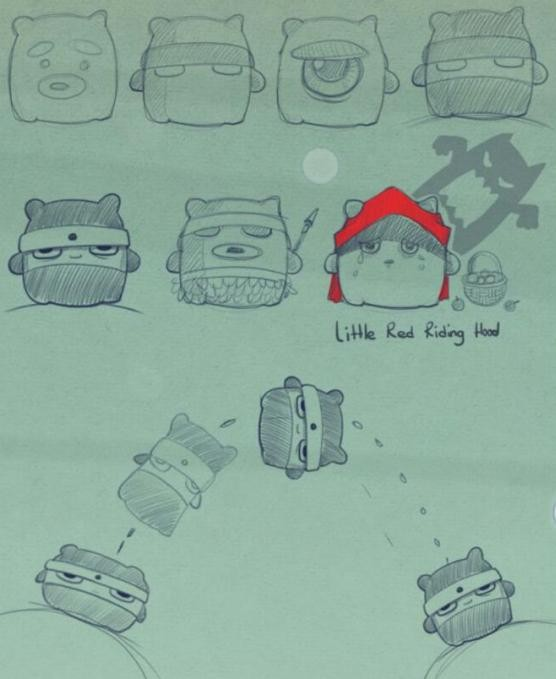 Little Red Riding Hood